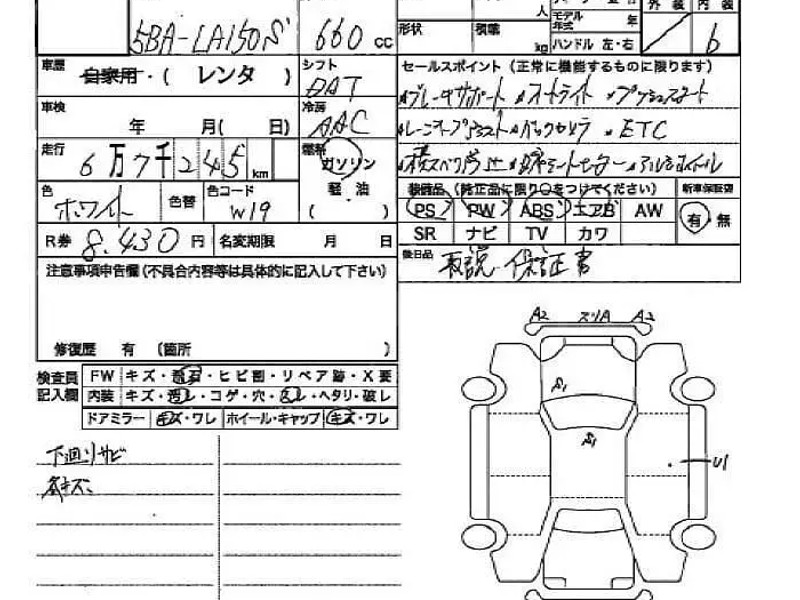 人
形状 積載 kg
モデル年式 年
ハンドル 左・右
外装 内装
6
5BA-LA150S 660 cc
車歴 自家用・( レンタ )
シフト
車検 年 月( 日)
冷房 AAC
走行 6万7千245 km
燃料 ガソリン
軽・油
( )
色 ホワイト 色替 色コード W19
R券 8,430 円 名変期限 月 日
セールスポイント (正常に機能するものに限ります)
・ブレーキサポート ・オートライト ・プッシュスタート
・コーナーアシスト ・バックカメラ ・ETC
・横スベリ防止 ・シートヒーター ・アルミホイール
装備品 (純正品に限り○をつけてください) 新車保証書
PS PW ABS エアB AW
有・無
SR ナビ TV カワ
後日品 取説 保証書
注意事項申告欄(不具合内容等は具体的に記入して下さい)
修復歴 有 (箇所 )
検査員記入欄
FW キズ・ ・ヒビ割・リペア跡・X要
内装 キズ・汚レ・コゲ・穴・ ・ヘタリ・破レ
ドアミラー キズ・ワレ ホイール・キャップ キズ・ワレ
下廻りサビ
各キズ
A2 スリA A2
S1
S1
U1